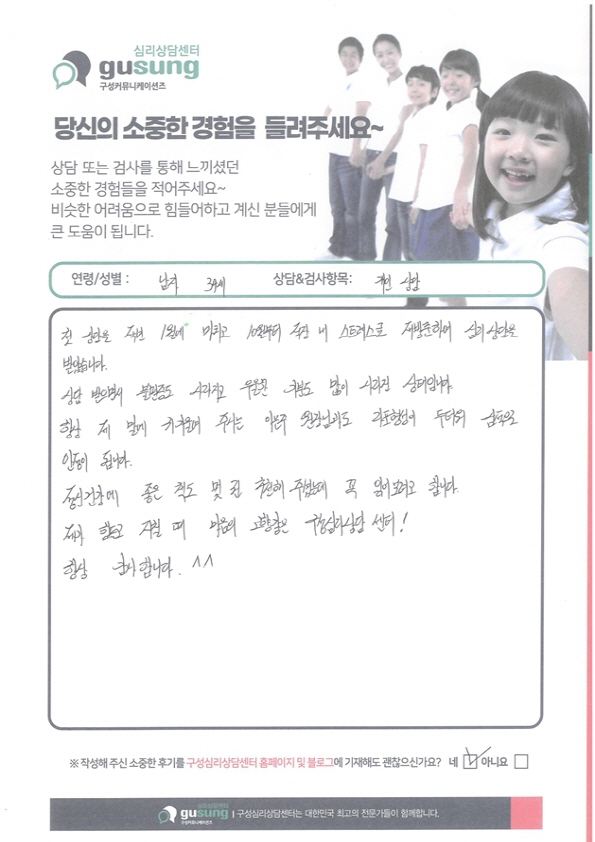 심리상담센터
gusung
구성커뮤니케이션즈
당신의 소중한 경험을 들려주세요~
상담 또는 검사를 통해 느끼셨던
소중한 경험들을 적어주세요~
비슷한 어려움으로 힘들어하고 계신 분들에게
큰 도움이 됩니다.
연령/성별 : 남자 34세 상담&검사항목: 개인 상담
첫 상담을 작년 1월에 마치고 10월부터 직장 내 스트레스로 재방문하여 심리상담을
받았습니다.
상담 받으면서 불면증도 사라지고 우울한 기분도 많이 사라진 상태입니다.
항상 제 말에 귀 기울여 주시는 원장님과도 라포형성이 두터워 감동으로
인동이 됩니다.
정신건강에 좋은 책도 몇 권 추천해 주셨는데 꼭 읽어보려고 합니다.
제가 힘들고 지칠 때 마음의 고향같은 구성심리상담 센터!
항상 감사합니다. ^^
※ 작성해 주신 소중한 후기를 구성심리상담센터 홈페이지 및 블로그에 기재해도 괜찮으신가요? 네 아니요
심리상담센터
gusung
구성커뮤니케이션즈
구성심리상담센터는 대한민국 최고의 전문가들이 함께합니다.